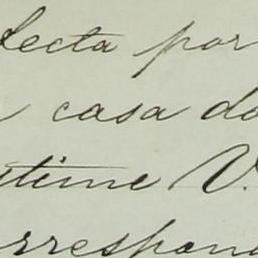 lecta por
casa do
time V.
rrespon